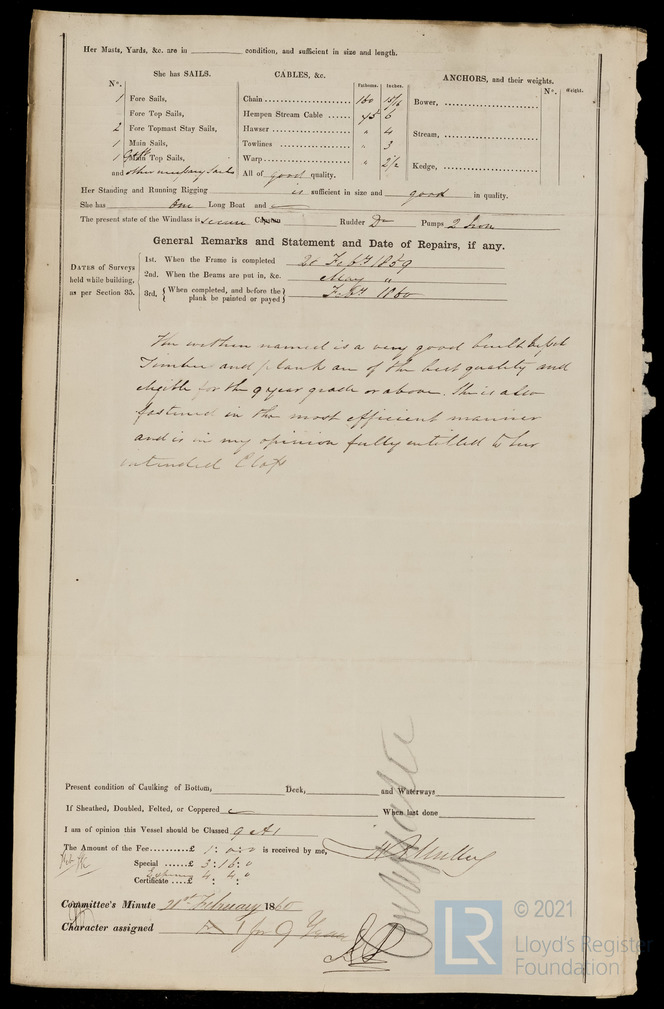 Her Masts, Yards, &c. are in condition, and sufficient in size and length.
She has SAILS.
CABLES, &c.
ANCHORS, and their weights.
N°.
Fathoms. Inches.
N°. Weight.
1 Fore Sails,
Chain 160 15/16
Bower,
" Fore Top Sails,
Hempen Stream Cable 75 6
2 Fore Topmast Stay Sails,
Hawser " 4
Stream,
1 Main Sails,
Towlines " 3
1 Main Top Sails,
Warp " 2½
Kedge,
and other necessary Sails
All of good quality.
Her Standing and Running Rigging is sufficient in size and good in quality.
She has One Long Boat and
The present state of the Windlass is secure Capstan Rudder Do Pumps 2 Iron
General Remarks and Statement and Date of Repairs, if any.
DATES of Surveys held while building, as per Section 35.
1st. When the Frame is completed 21 Feby 1859
2nd. When the Beams are put in, &c. May "
3rd. When completed, and before the plank be painted or payed Feby 1860
The within named is a very good built
Timber and plank are of the best quality and
eligible for the 9 year grade or above. She is also
fastened in the most efficient manner
and is in my opinion fully entitled to her
intended Class
Present condition of Caulking of Bottom, Deck, and Waterways
If Sheathed, Doubled, Felted, or Coppered When last done
I am of opinion this Vessel should be Classed 9 A1
The Amount of the Fee £ 1 : 0 : 0 is received by me,
Special £ 3 : 16 : 0
Certificate £ 4 : 4 : 0
Committee's Minute 21st February 1860
Character assigned A 1 for 9 Years
LR
© 2021
Lloyd's Register
Foundation